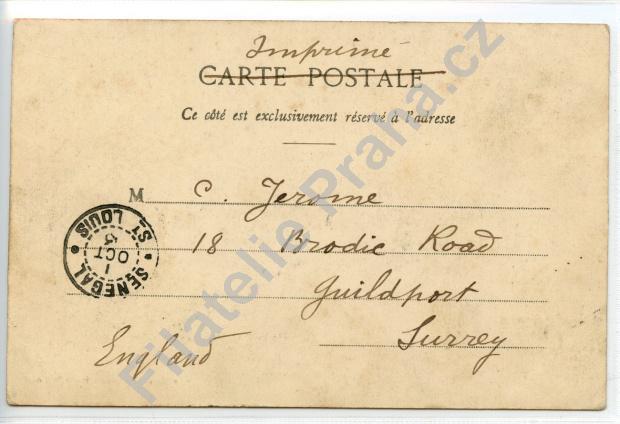 Imprimé
CARTE POSTALE
Ce côté est exclusivement réservé à l'adresse
M C. Jerome
18 Brodie Road
Guildport
Surrey
England
SÉNÉGAL
ST LOUIS
1
OCT
Filatelie Praha.cz